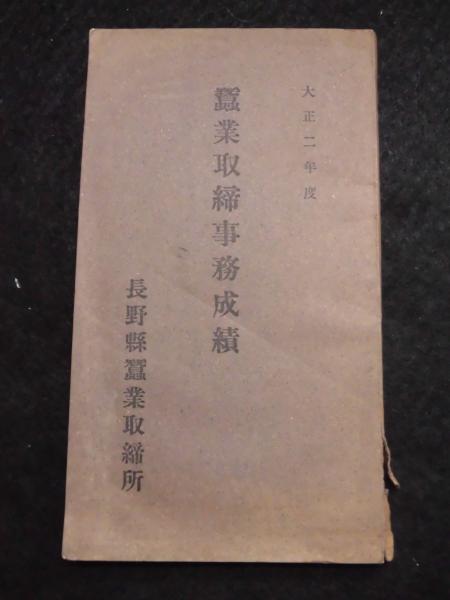 大正二年度
蠶業取締事務成績
長野縣蠶業取締所